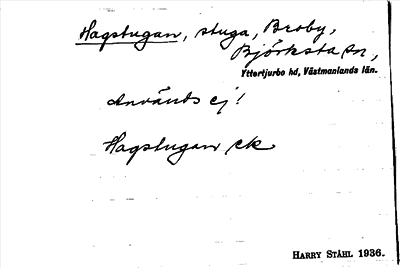 Hagstugan, stuga, Broby,
Björksta sn,
Yttertjurbo hd, Västmanlands län.
Används ej!
Hagstugan ek
HARRY STÅHL 1936.